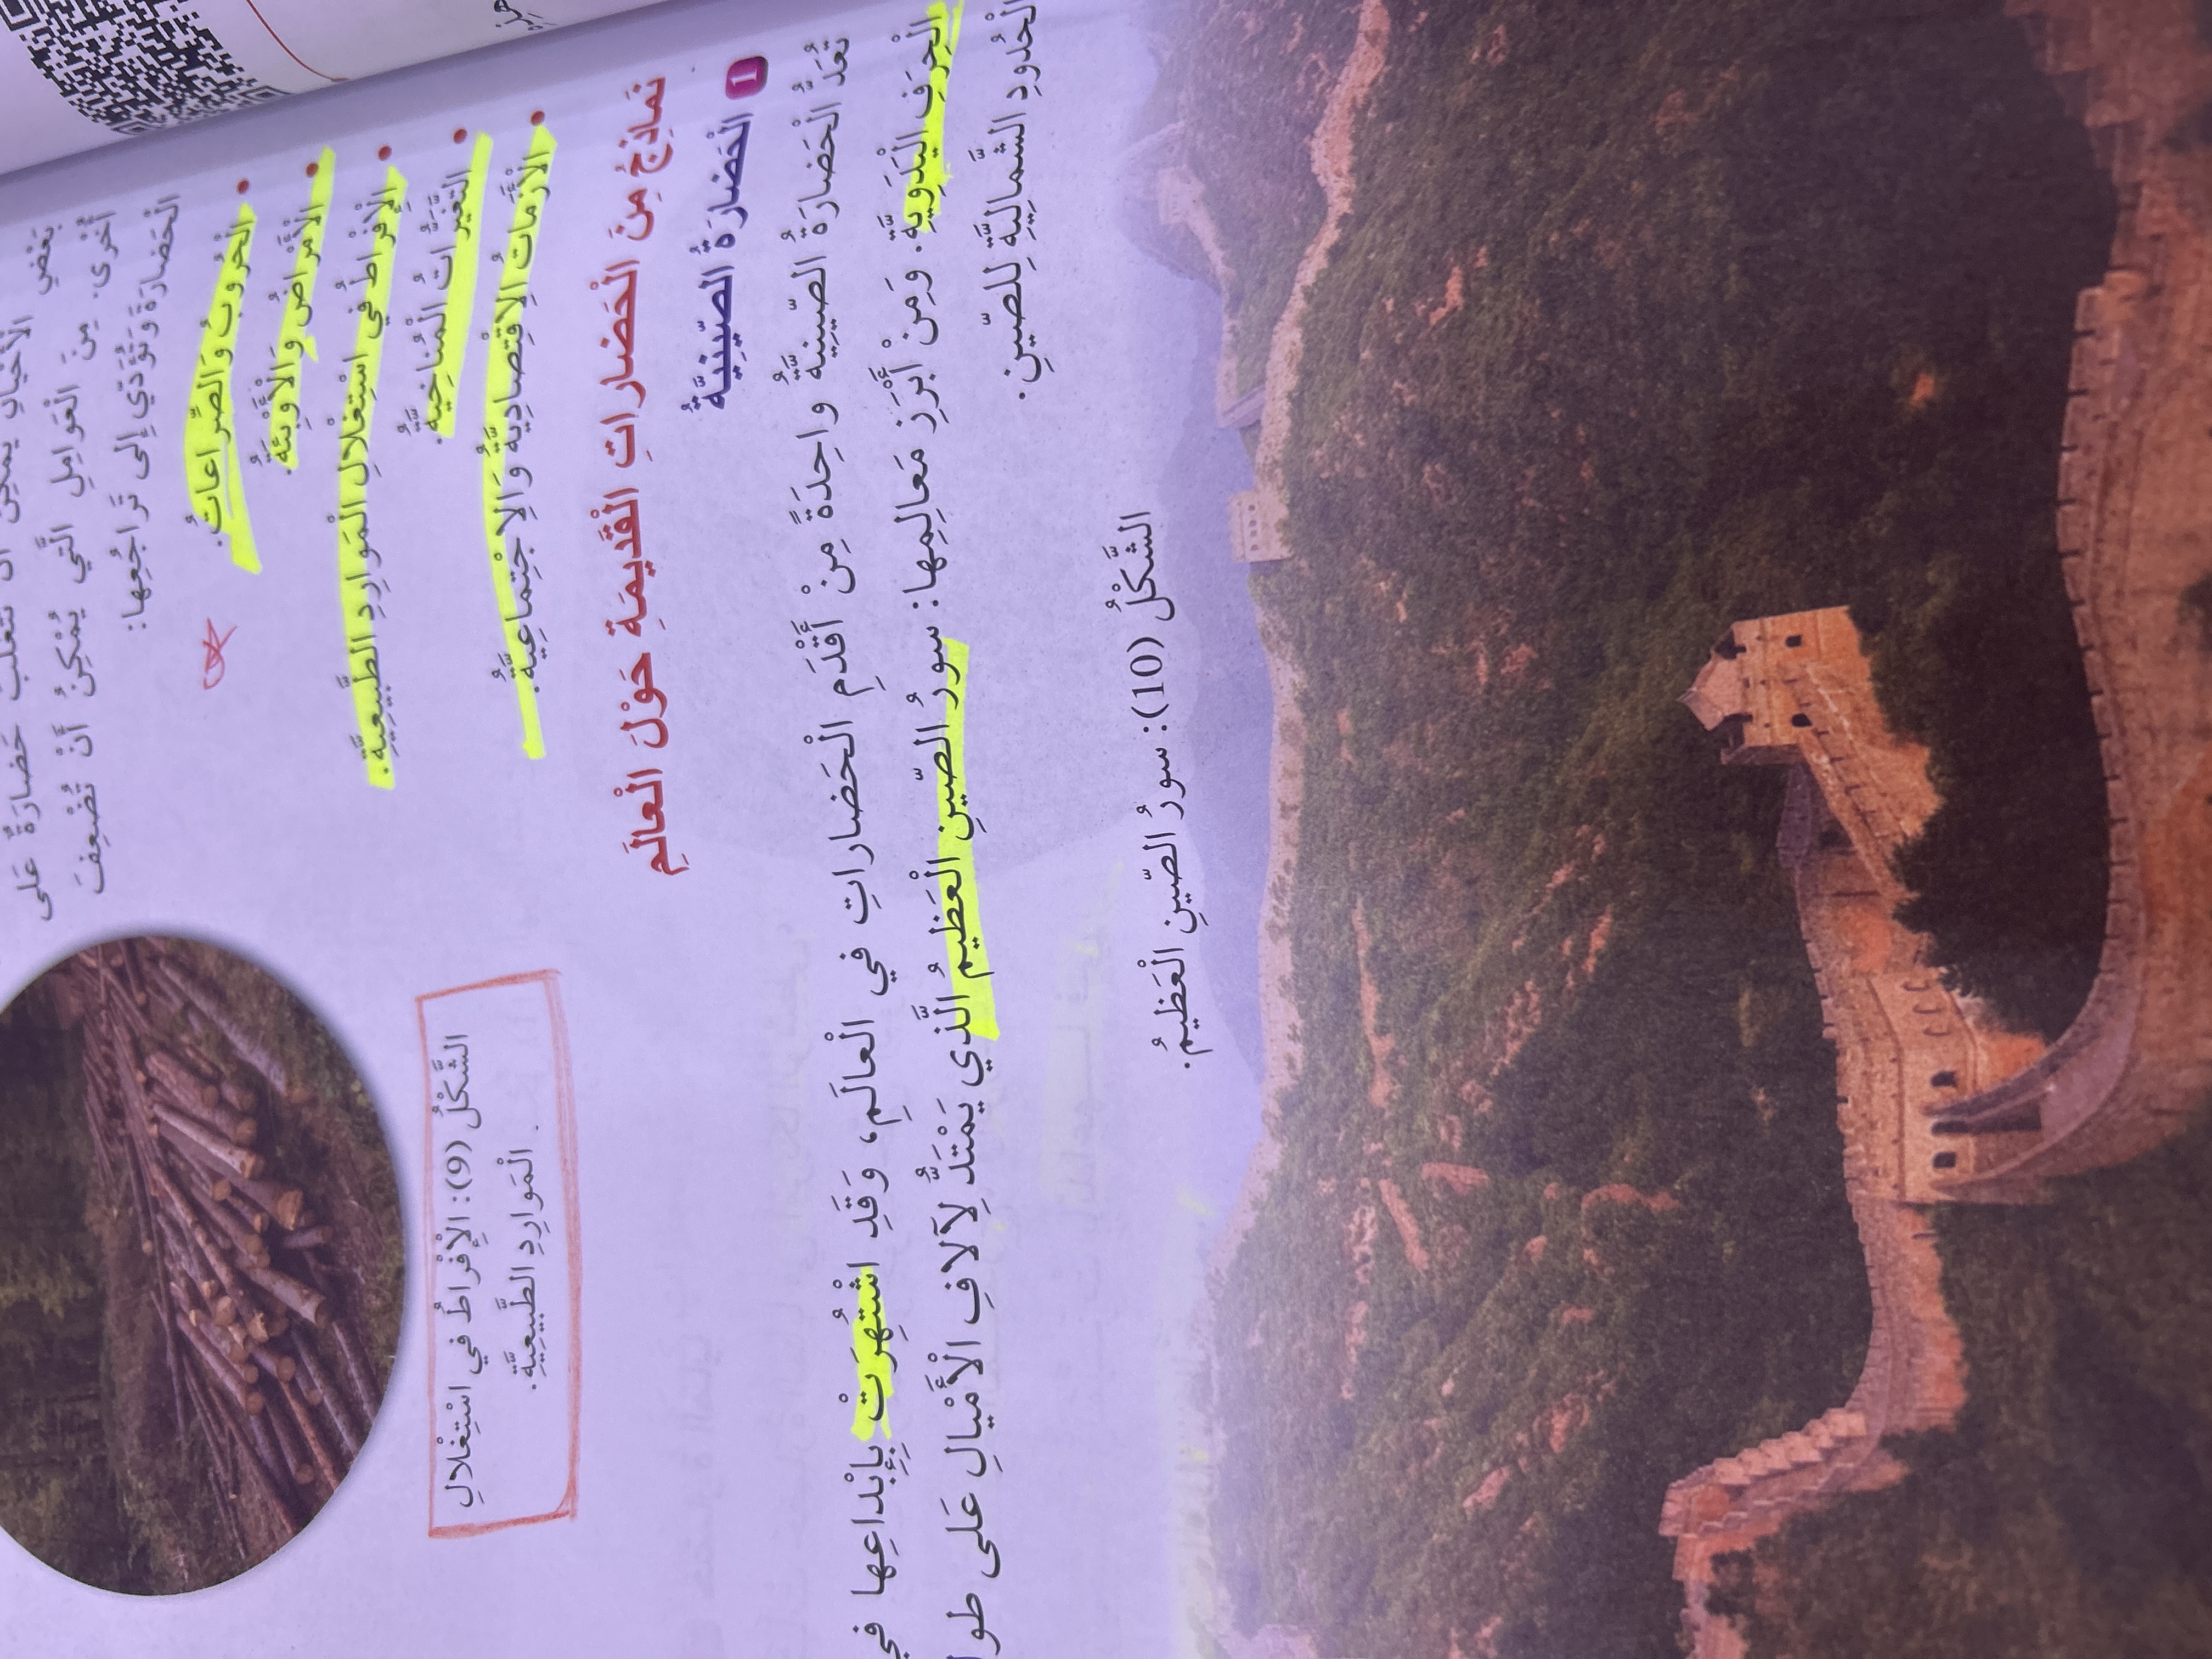 بَعْضِ الْأَحْيَانِ يُمْكِنُ أَنْ تَتَغَلَّبَ حَضَارَةٌ عَلَى
أُخْرَى. مِنَ الْعَوَامِلِ الَّتِي يُمْكِنُ أَنْ تُضْعِفَ
الْحَضَارَةَ وَتُؤَدِّيَ إِلَى تَرَاجُعِهَا:
• الْحُرُوبُ وَالصِّرَاعَاتُ.
• الْأَمْرَاضُ وَالْأَوْبِئَةُ.
• الْإِفْرَاطُ فِي اسْتِغْلَالِ الْمَوَارِدِ الطَّبِيعِيَّةِ.
• التَّغَيُّرَاتُ الْمُنَاخِيَّةُ.
• الْأَزَمَاتُ الِاقْتِصَادِيَّةُ وَالِاجْتِمَاعِيَّةُ.
الشَّكْلُ (9): الْإِفْرَاطُ فِي اسْتِغْلَالِ
الْمَوَارِدِ الطَّبِيعِيَّةِ.
نَمَاذِجُ مِنَ الْحَضَارَاتِ الْقَدِيمَةِ حَوْلَ الْعَالَمِ
1 الْحَضَارَةُ الصِّينِيَّةُ
تُعَدُّ الْحَضَارَةُ الصِّينِيَّةُ وَاحِدَةً مِنْ أَقْدَمِ الْحَضَارَاتِ فِي الْعَالَمِ، وَقَدِ اشْتُهِرَتْ بِإِبْدَاعِهَا فِي
الْحِرَفِ الْيَدَوِيَّةِ. وَمِنْ أَبْرَزِ مَعَالِمِهَا: سُورُ الصِّينِ الْعَظِيمُ الَّذِي يَمْتَدُّ لِآلَافِ الْأَمْيَالِ عَلَى طُولِ
الْحُدُودِ الشَّمَالِيَّةِ لِلصِّينِ.
الشَّكْلُ (10): سُورُ الصِّينِ الْعَظِيمُ.